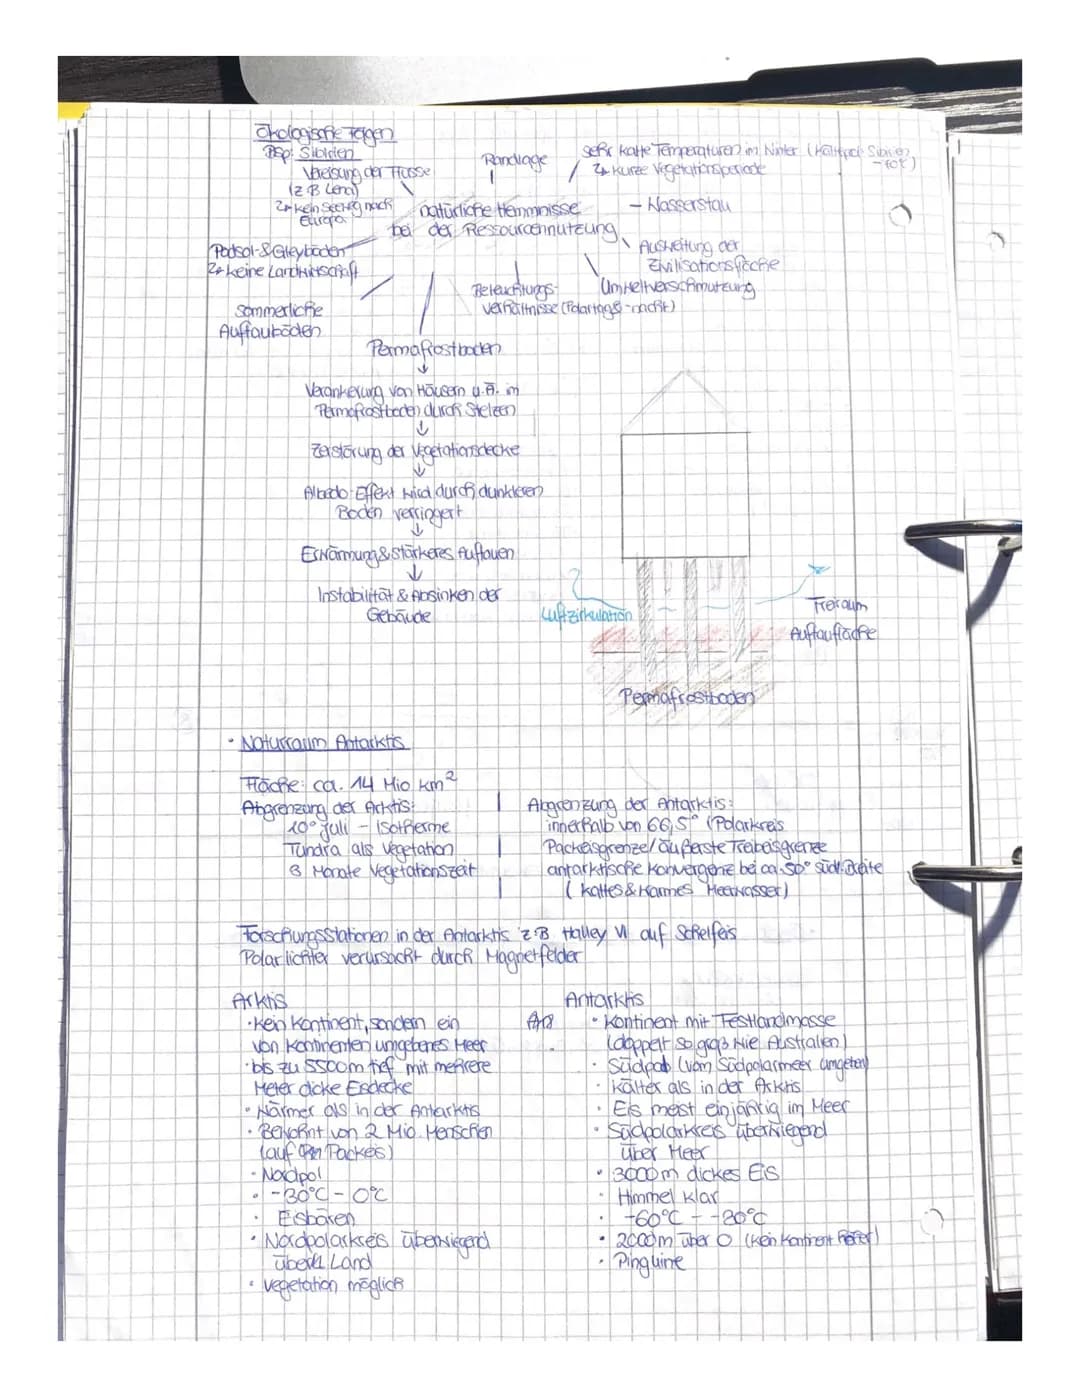 Ökologische Folgen
Bsp: Sibirien
Vereisung der Flüsse
(z B Lena)
↳ kein Seeweg nach
Europa
Randlage
sehr kalte Temperaturen im Winter (Kältepol Sibirien
-70°C)
↳ kurze Vegetationsperiode
natürliche Hemmnisse
bei der Ressourcennutzung
- Wasserstau
Ausweitung der
Zivilisationsfläche
Umweltverschmutzung
Podsol- & Gleyböden
↳ keine Landwirtschaft
Beleuchtungs-
verhältnisse (Polartag & -nacht)
sommerliche
Auftauböden
Permafrostboden
↓
Verankerung von Häusern u.Ä. im
Permafrostboden durch Stelzen
↓
Zerstörung der Vegetationsdecke
↓
Albedo-Effekt wird durch dunkleren
Boden verringert
↓
Erwärmung & stärkeres Auftauen
↓
Instabilität & Absinken der
Gebäude
Luftzirkulation
Freiraum
Auftaufläche
Permafrostboden
• Naturraum Antarktis
Fläche: ca. 14 Mio km²
Abgrenzung der Arktis:
10° Juli - Isotherme
Tundra als Vegetation
3 Monate Vegetationszeit
Abgrenzung der Antarktis:
innerhalb von 66,5° (Polarkreis
Packeisgrenze/äußerste Treibeisgrenze
antarktische Konvergenz bei ca. 50° südl. Breite
(kaltes & warmes Meerwasser)
Forschungsstationen in der Antarktis z.B Halley VI auf Schelfeis
Polarlichter verursacht durch Magnetfelder
Arktis
• kein Kontinent, sondern ein
von Kontinenten umgebenes Meer
• bis zu 5500m tief mit mehrere
Meter dicke Eisdecke
• Wärmer als in der Antarktis
• Bewohnt von 2 Mio. Menschen
(auf Packeis)
• Nordpol
• -30°C - 0°C
• Eisbären
• Nordpolarkreis überwiegend
über Land
• Vegetation möglich
Antarktis
• Kontinent mit Festlandmasse
(doppelt so groß wie Australien)
• Südpol (vom Südpolarmeer umgeben)
• kälter als in der Arktis
• Eis meist einjährig im Meer
• Südpolarkreis überwiegend
über Meer
• 3000m dickes Eis
• Himmel klar
• -60°C - -20°C
• 2000m über 0 (kein Kontinent höher)
• Pinguine